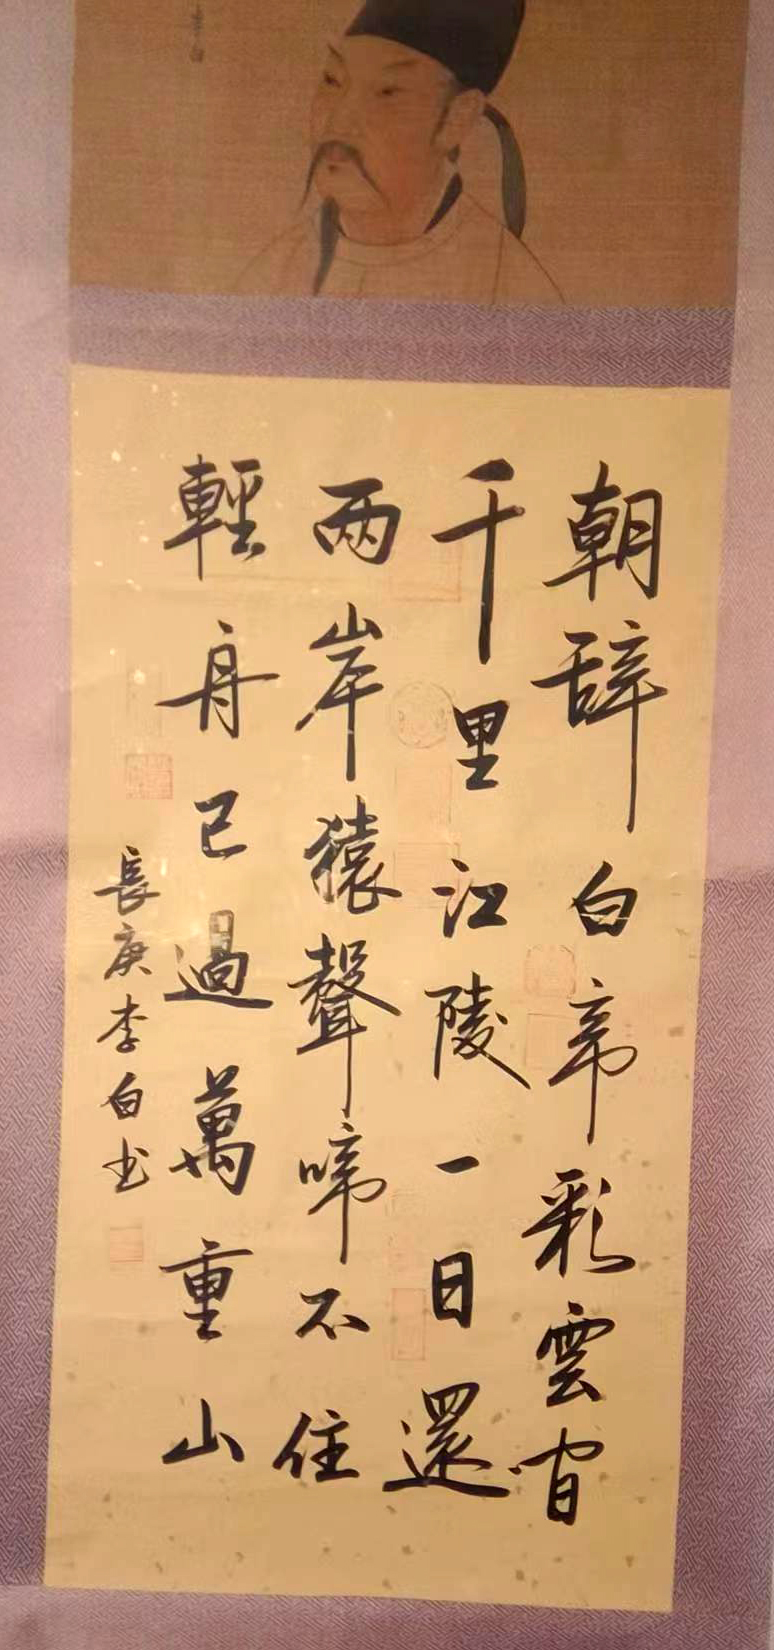 朝辞白帝彩雲間
千里江陵一日還
两岸猿聲啼不住
輕舟已過萬重山
長庚李白书